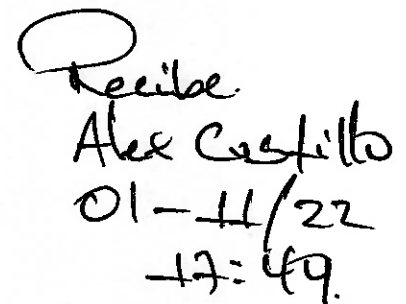 Recibe.
Alex Castillo
01-11/22
17:49.